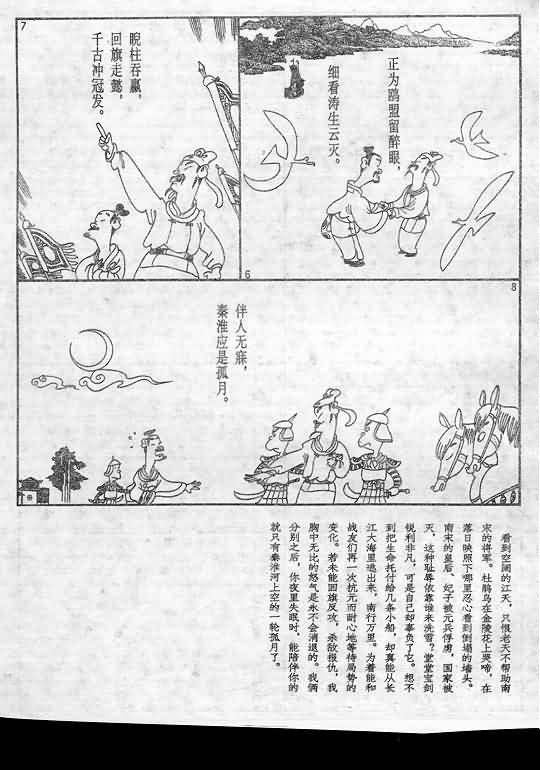 6
正为鸥盟留醉眼，
细看涛生云灭。
7
睨柱吞嬴，
回旗走懿，
千古冲冠发。
8
伴人无寐，
秦淮应是孤月。
看到空阔的江天，只恨老天不帮助南
宋的将军。杜鹃鸟在金陵花上哭啼，在
落日映照下哪里忍心看到倒塌的墙头。
南宋的皇后、妃子被元兵俘虏，国家被
灭，这种耻辱依靠谁来洗雪？堂堂宝剑
锐利非凡，可是自己却辜负了它。想不
到把生命托付给几条小船，却真能从长
江大海里逃出来，南行万里。为着能和
战友们再一次抗元而耐心地等待局势的
变化。若未能回旗反攻，杀敌报仇，我
胸中无比的怒气是永不会消退的。我俩
分别之后，你夜里失眠时，能陪伴你的
就只有秦淮河上空的一轮孤月了。